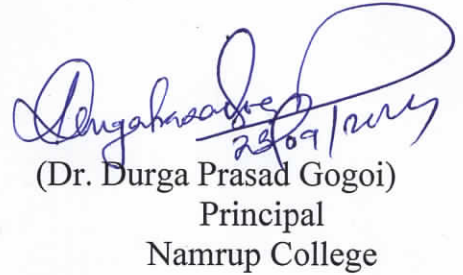 23/09/2024
(Dr. Durga Prasad Gogoi)
Principal
Namrup College